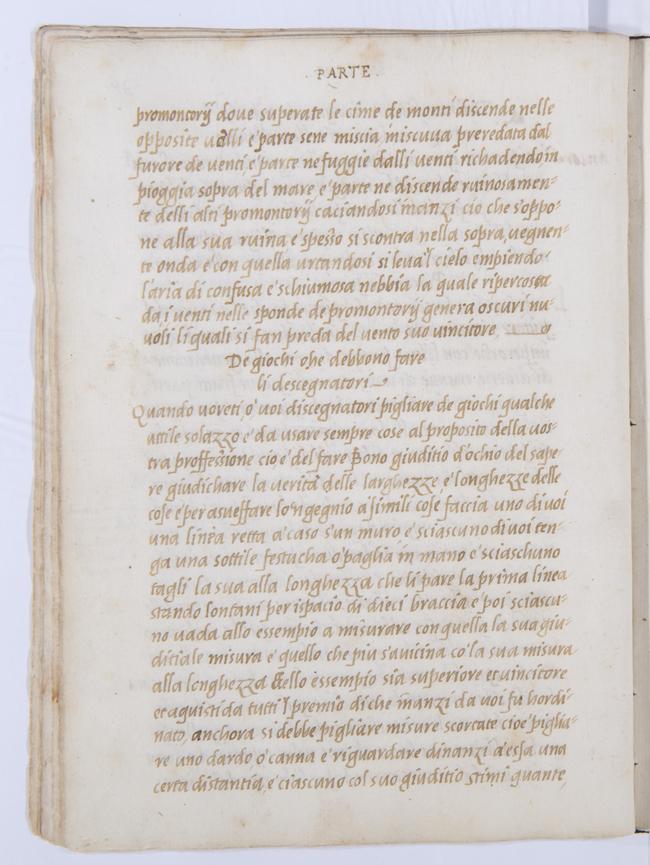 PARTE
promontorij dove superate le cime de monti discende nelle
opposite valli e parte sene miscia in
furore de venti, e parte ne fuggie dalli venti richadendo in
pioggia sopra del mare e parte ne discende ruinosamen-
te delli alti promontorij caciandosi inanzi cio che s'oppo-
ne alla sua ruina e spesso si scontra nella sopra, vegnen-
te onda e con quella urtandosi si leva'l cielo empiendo
l'aria di confusa e schiumosa nebbia la quale ripercossa
da i venti nelle sponde de promontorij genera oscuri nu-
voli li quali si fan preda del vento suo vincitore,
De giochi che debbono fare
li descegnatori
Quando voreti o voi discegnatori pigliare de giochi qualche
uttile solazzo e da usare sempre cose al proposito della vos-
tra proffessione cio e del fare bono giuditio d'ochio del sape-
re giudichare la verità delle larghezze e longhezze delle
cose e per asueffare lo ngegnio a simili cose faccia uno di voi
una linea retta a caso s'un muro e sciascuno di voi ten-
ga una sottile festucha o paglia in mano e sciaschuno
tagli la sua alla longhezza che li pare la prima linea
stando lontani per ispacio di dieci braccia e poi sciascu-
no vada allo essempio a misurare con quella la sua giu-
diciale misura e quello che piu s'avicina co la sua misura
alla longhezza dello essempio sia superiore et vincitore
et aquisti da tutti'l premio di che inanzi da voi fu hordi-
nato, anchora si debbe pigliare misure scortate cioe piglia-
re uno dardo o canna e riguardare dinanzi a essa una
certa distantia, e ciascuno col suo giuditio stimi quante,